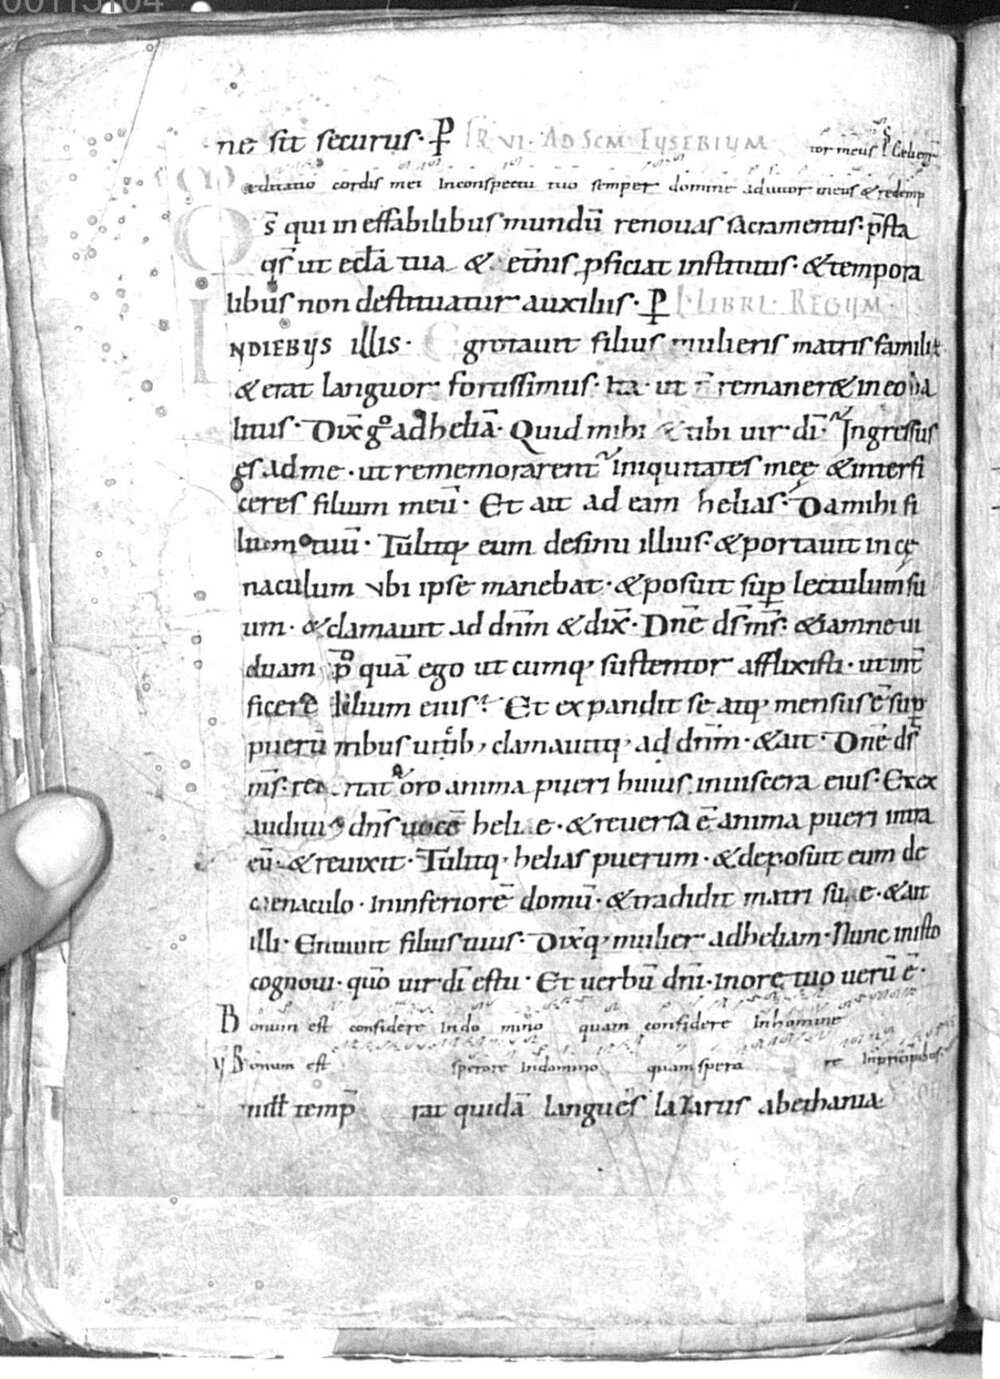 ne sit securus· P̄ FR VI · AD SCM EUSEBIUM tor meus
Meditatio cordis mei Inconspectu tuo semper domine adiutor meus & redemp
D̄s qui in effabilibus mundū renouas sacramentis· p̄sta
qs̄ ut eccl̄a tua & et̄nis pficiat institutis· & tempora
libus non destituatur auxiliis· P̄ L· LIBRI REGUM·
INDIEBUS illis· Egrotauit filius mulieris matris familię
& erat languor fortissimus· Ita· ut n̄ remaner& in eo ha
litus· Dix̄ gͦ ad heliā· Quid mihi & tibi uir dī· Ingressus
es ad me· ut rememorarent iniquitates meę & interfi
ceres filium meū· Et ait ad eam helias· Da mihi fi
lium tuū· Tulitq; eum de sinu illius· & portauit in cę
naculum ubi ipse manebat· & posuit sup lectulum su
um· & clamauit ad dn̄m & dix̄· Dn̄e ds̄ ms̄· &iamne ui
duam p̄ quā ego ut cumq; sustentor afflixisti· ut int̄
ficere filium eius· Et expandit se atq; mensus ē sup
puerū tribus uicib; clamauitq; ad dn̄m· & ait· Dn̄e ds̄
ms̄· reuertat oro anima pueri huius inuiscera eius· Et ex
audiuit dn̄s uocē heliae· & reuersa ē anima pueri intra
eū· & reuixit· Tulitq; helias puerum· & deposuit eum de
caenaculo· In inferiorē domū· & tradidit matri suae· & ait
illi· En uiuit filius tuus· Dixitq; mulier ad heliam· Nunc in isto
cognoui· quō uir dī es tu· Et uerbū dn̄i· In ore tuo uerū ē·
Bonum est confidere Indo mino quam confidere Inhomine
V Bonum est sperare Indomino quam spera re Inprincipibus
In ill temp̄ rat quidā languēs lazarus abethania